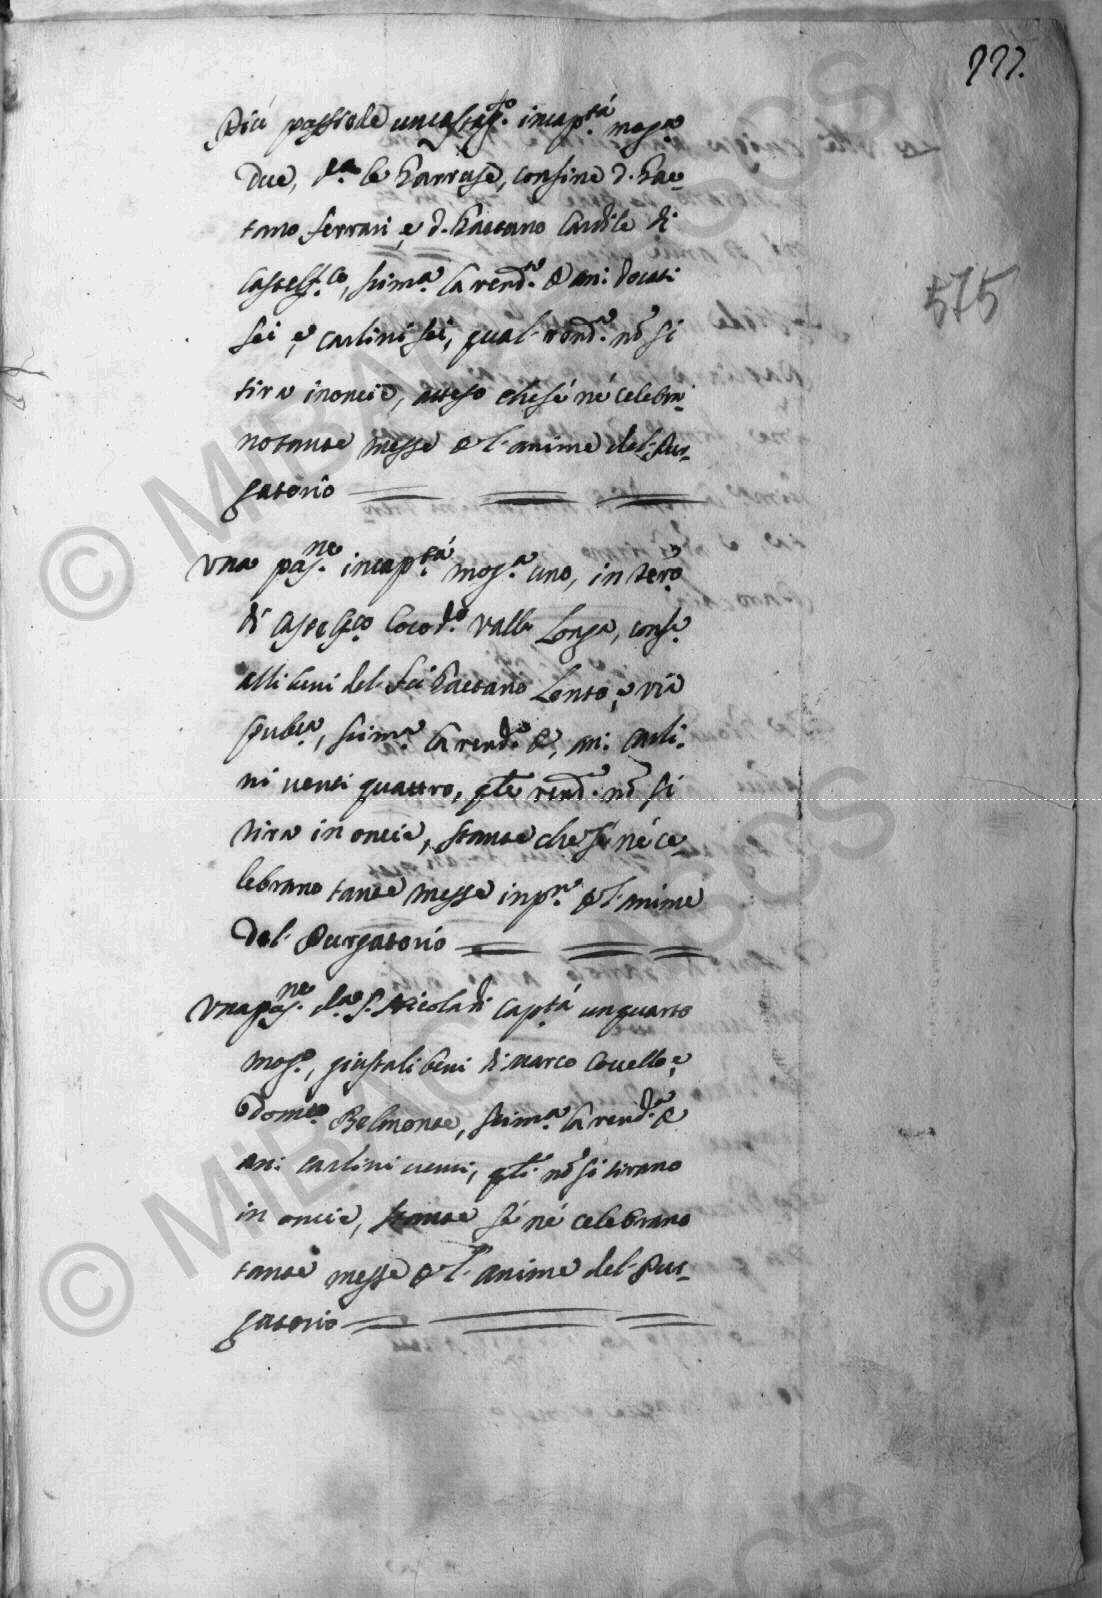 777.
575
Più possiede un castag.to in cap.tá mog.a
due, d.a le Carruse, confine d. Gae-
tano ferrari, e d. Gaetano Cardile di
Castelf.co, stim.a la rend.a ani: docati
sei, e carlini sei, qual rend.a nō si
tira in oncie, atteso che sé né celebra-
no tante messe l'anime del Pur-
gatorio
Una pos.ne in cap.tá mog.a uno, in terō
di Castelf.co loco d.o Valle Longa, conf.e
alli beni del Gaetano Lento, e via
pub.ca, stim.a la rend.a ani: carli-
ni venti quattro, qle rend.a nō si
tira in oncie, stante che sé né ce-
lebrano tante messe in l'anime
del Purgatorio
Una pos.ne d.a S. Nicola di cap.tá un quarto
mog.o, giusta li beni di Marco Covello, e
Dom.co Belmonte, stim.a la rend.a
ani: carlini venti, qli nō si tirano
in oncie, stante sé né celebrano
tante messe l'anime del Pur-
gatorio
© MIBAC ASCS
© MIBAC ASCS